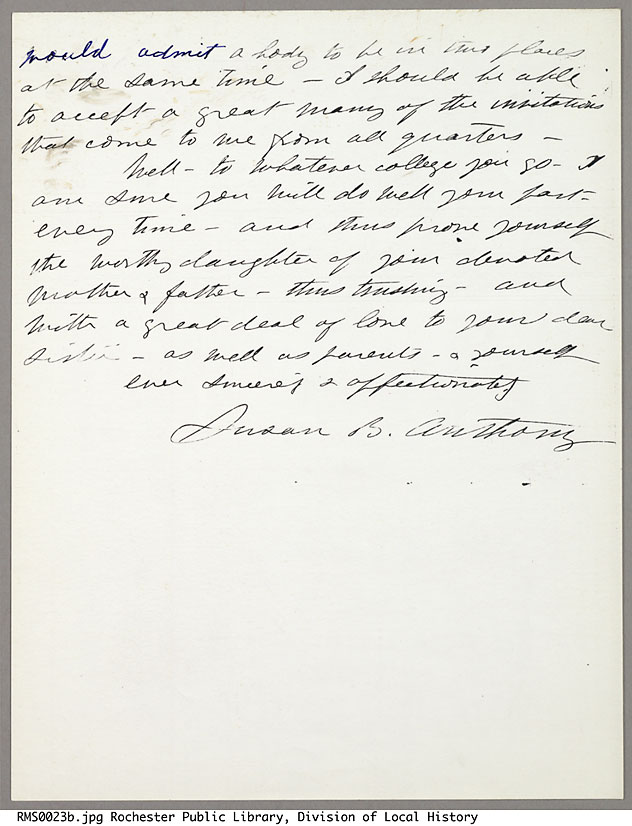 would admit a body to be in two places
at the same time - I should be able
to accept a great many of the invitations
that come to me from all quarters -
Well - to whatever college you go - I
am sure you will do well your part -
every time - and thus prove yourself
the worthy daughter of your devoted
mother & father - thus trusting - and
with a great deal of love to your dear
sister - as well as parents - & yourself
ever sincerely & affectionately
Susan B. Anthony
RMS0023b.jpg Rochester Public Library, Division of Local History